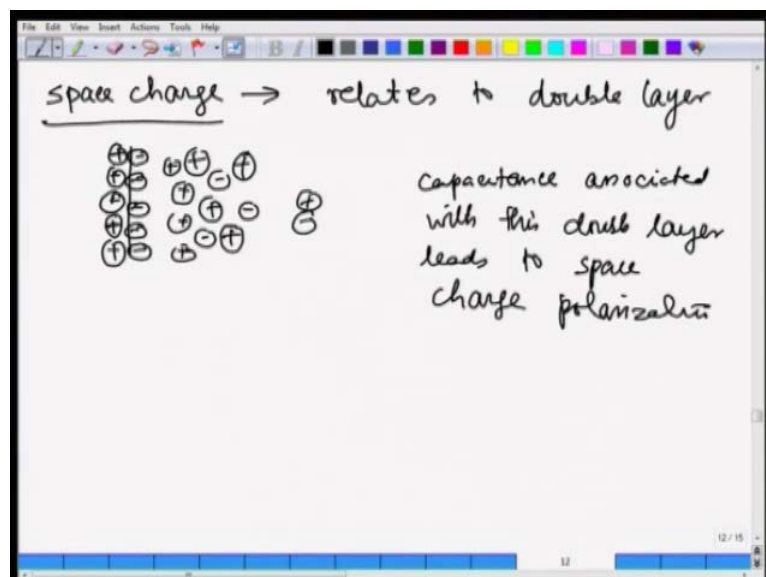 File Edit View Insert Actions Tools Help
space charge → relates to double layer
capacitance associated
with this double layer
leads to space
charge polarization
12 / 15
12